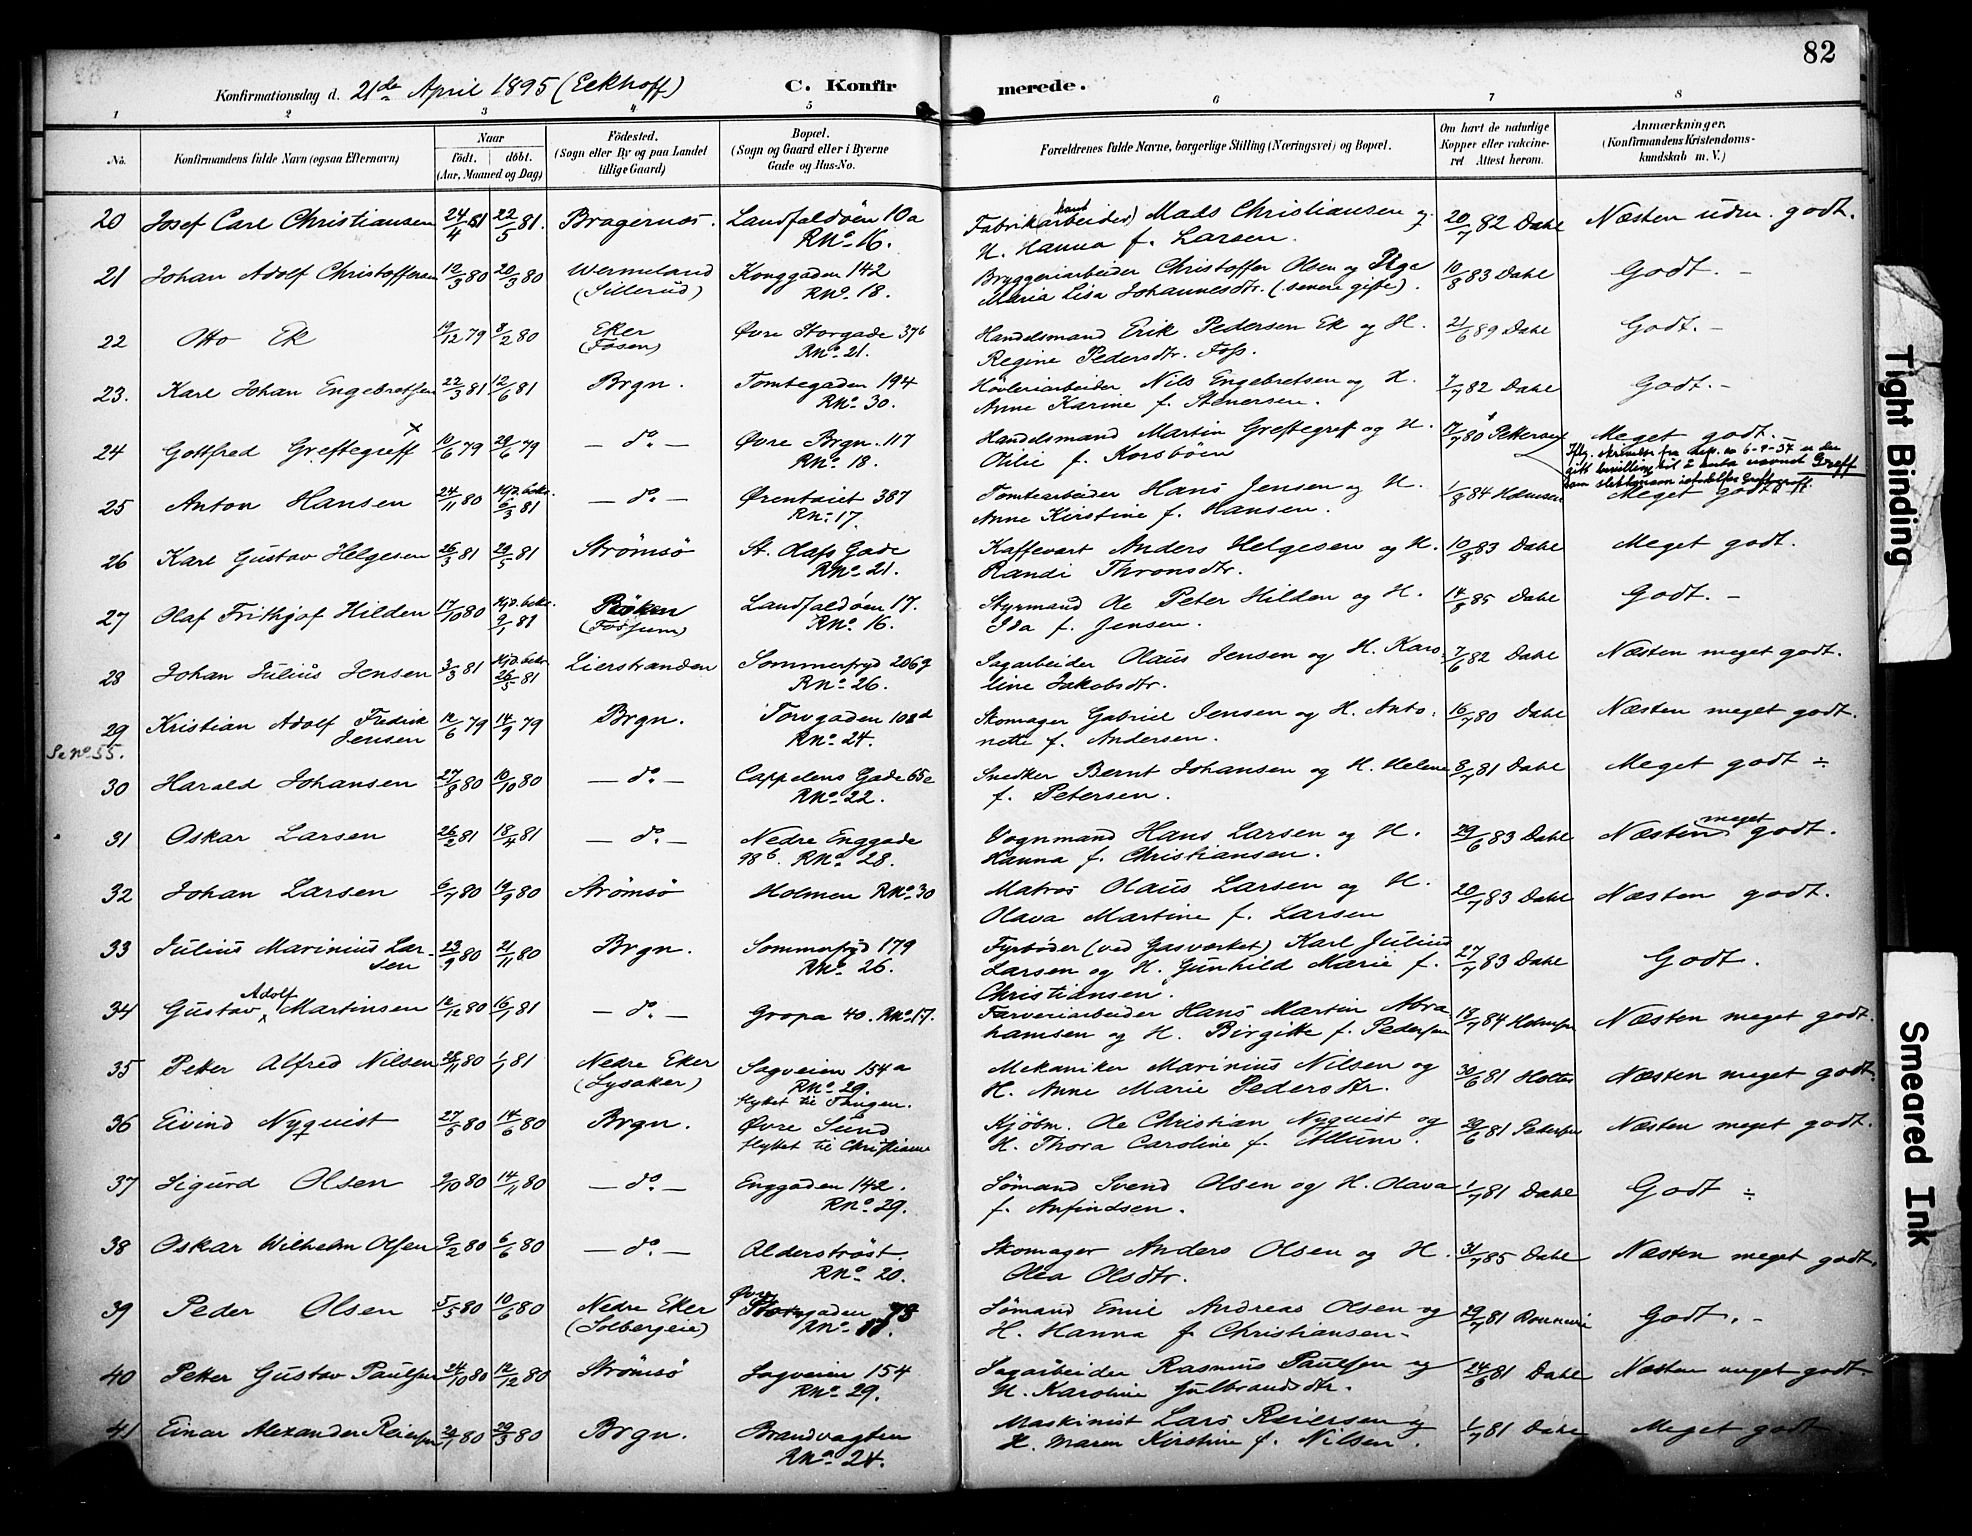 82
Konfirmationsdag d. 21de April 1895 (Eckhoff) C. Konfirmerede.
1 2 3 4 5 6 7 8
No. Konfirmandens fulde Navn (ogsaa Efternavn) Naar Født. døbt. (Aar, Maaned og Dag) Födested. (Sogn eller By og paa Landet tillige Gaard) Bopæl. (Sogn og Gaard eller i Byerne Gade og Hus-No. Forældrenes fulde Navne, borgerlige Stilling (Næringsvei) og Bopæl. Om havt de naturlige Kopper eller vakcineret Attest herom. Anmærkninger. (Konfirmandens Kristendomskundskab m. V.)
20 Josef Carl Christiansen 24/4 81 22/5 81. Bragernæs Landfaldöen 10a Fabrikarbeider) Mads Christiansen og 20/7 82 Dahl Næsten udm. godt.
RNo 16. H. Hanna f. Larsen.
21 Johan Adolf Christoffersen 12/3 80 20/3 80 Wermeland Konggaden 142 Bryggeriarbeider Christoffer Olsen og Pige 10/8 83 Dahl Godt. –
(Sillerud) RNo 18. Maria Lisa Johannesdtr. (senere gifte).
22 Otto Ek 19/12 79 8/2 80 Eker Øvre Storgade 37b Handelsmand Erik Pedersen Ek og H. 21/6 89 Dahl Godt. –
(Fosen) RNo 21. Regine Pedersdtr. Foss.
23. Karl Johan Engebretsen 22/3 81 12/6 81 Brgn. Tomtegaden 194 Høvleriarbeider Nils Engebretsen og H. 7/7 82 Dahl Godt. –
RNo 30. Anne Karine f. Stenersen.
24 Gottfred Greftegreff x 10/6 79 29/6 79 – do – Øvre Brgn. 117 Handelsmand Martin Greftegreff og H. 17/7 80 Meget godt.
RNo 18. Otilie f. Korsböen
Ifg. skrivelse fra 6-9-37 er der
gitt bevilling til å anta navnet Greff
som slektsnavn istedetfor Greftegreff.
25 Anton Hansen 24/11 80 Hjd. bekr. 6/3 81 – do – Ørentøiet 387 Tomtearbeider Hans Jensen og H. 1/8 84 Meget godt.
RNo 17. Anne Kirstine f. Hansen.
26 Karl Gustav Helgesen 26/3 81 29/5 81 Strömsö St. Olafs Gade Kaffevært Anders Helgesen og H. 10/8 83 Dahl Meget godt.
RNo 21. Randi Thronsdtr.
27 Olaf Frithjof Hilden 17/10 80 Hjd. bekr. 9/1 81 Röken Landfaldöen 17. Styrmand Ole Peter Hilden og H. 14/8 85 Dahl Godt. –
(Fossum) RNo 16. Ida f. Jensen.
28 Johan Julius Jensen 3/3 81 Hjd. bekr. 26/5 81 Lierstranden Sommerfryd 206g Sagarbeider Olaus Jensen og H. Karo- 7/6 82 Dahl Næsten meget godt.
RNo 26. line Jakobsdtr.
29 Kristian Adolf Fredrik 12/6 79 14/9 79 Brgn. Torvgaden 108d Skomager Gabriel Jensen og H. Anto- 16/7 80 Dahl Næsten meget godt.
Jensen RNo 24. nette f. Andersen.
Se no 55.
30 Harald Johansen 27/8 80 10/10 80 – do – Cappelens Gade 65e Snedker Bernt Johansen og H. Helene 8/7 81 Dahl Meget godt ÷
RNo 22. f. Petersen.
31 Oskar Larsen 26/2 81 18/4 81 – do – Nedre Enggade Vognmand Hans Larsen og H. 29/6 83 Dahl Næsten meget godt.
98b. RNo 28. Hanna f. Christiansen.
32 Johan Larsen 6/7 80 19/9 80 Strömsö Holmen RNo 30 Matros Olaus Larsen og H. 20/7 83 Dahl Næsten godt.
Olava Martine f. Larsen
33 Julius Marinius Lar- 23/9 80 21/11 80 Brgn. Sommerfryd 179 Fyrbøder (ved Gasværket) Karl Julius 27/7 83 Dahl Godt.
sen RNo 26. Larsen og H. Gunhild Marie f.
Christiansen.
34 Gustav Adolf Martinsen 12/12 80 16/1 81 – do – Gropa 40. RNo 17. Farveriarbeider Hans Martin Abra- 18/7 84 Næsten meget godt.
hamsen og H. Birgitte f. Pedersen
35 Petter Alfred Nilsen 28/11 80 1/1 81 Nedre Eker Sagveien 154a Mekaniker Marinius Nilsen og 30/6 81 Holter Næsten meget godt.
(Lysaker) RNo 29. H. Anne Marie Pedersdtr.
flyttet til Tangen.
36 Eivind Nyquist 27/5 80 14/6 80 Brgn. Øvre Sund Kjöbm. Ole Christian Nyquist og 29/6 81 Næsten meget godt.
flyttet til Christiania H. Thora Caroline f. Allum.
37 Sigurd Olsen 9/10 80 14/11 80 – do – Enggaden 142. Sömand Svend Olsen og H. Olava 1/7 81 Dahl Godt ÷
RNo 29. f. Anfindsen.
38 Oskar Wilhelm Olsen 9/2 80 6/6 80 – do – Alderströst. Skomager Anders Olsen og H. 31/7 85 Dahl Næsten meget godt.
RNo 20. Olea Olsdtr.
39 Peder Olsen 5/5 80 10/6 80 Nedre Eker Øvre Storgaden 73 Sömand Emil Andreas Olsen og 29/7 81 Godt. –
(Solbergeie) RNo 17. H. Hanna f. Christiansen –
40 Petter Gustav Paulsen 24/10 80 12/12 80 Strömsö Sagveien 154 Sagarbeider Rasmus Paulsen og 24/6 81 Dahl Næsten meget godt.
RNo 29. H. Karoline Gulbrandsdtr.
41 Einar Alexander Reiersen 24/1 80 29/3 80 Brgn. Brandvagten Maskinist Lars Reiersen og 1/7 81 Dahl Meget godt
RNo 24. H. Maren Kirstine f. Nilsen.
Tight Binding
Smeared Ink